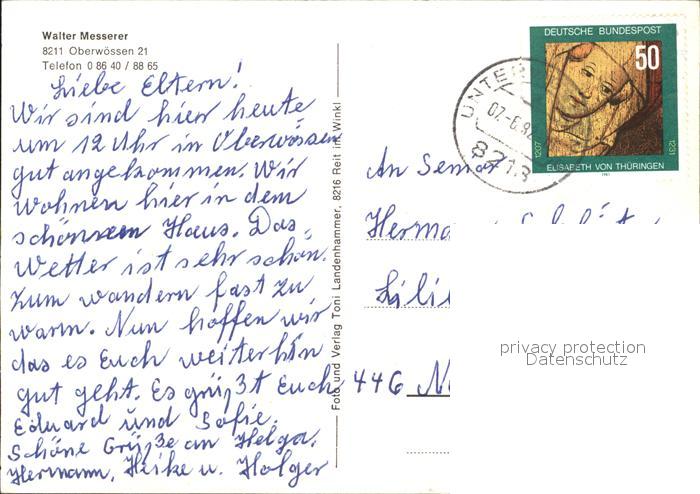 Walter Messerer
8211 Oberwössen 21
Telefon 0 86 40 / 88 65
Liebe Eltern!
Wir sind hier heute
um 12 Uhr in Oberwössen
gut angekommen. Wir
wohnen hier in dem
schönsten Haus. Das
Wetter ist sehr schön.
Zum wandern fast zu
warm. Nun hoffen wir
das es Euch weiterhin
gut geht. Es grüßt Euch
Eduard und Sofie.
Schöne Grüße an Helga,
Hermann, Heike u. Holger
Foto und Verlag Toni Landenhammer, 8216 Reit im Winkl
DEUTSCHE BUNDESPOST
50
1207
1231
ELISABETH VON THÜRINGEN
1981
UNTER
07.-6.82
8218
An
Herma
Lili
446 N
privacy protection
Datenschutz